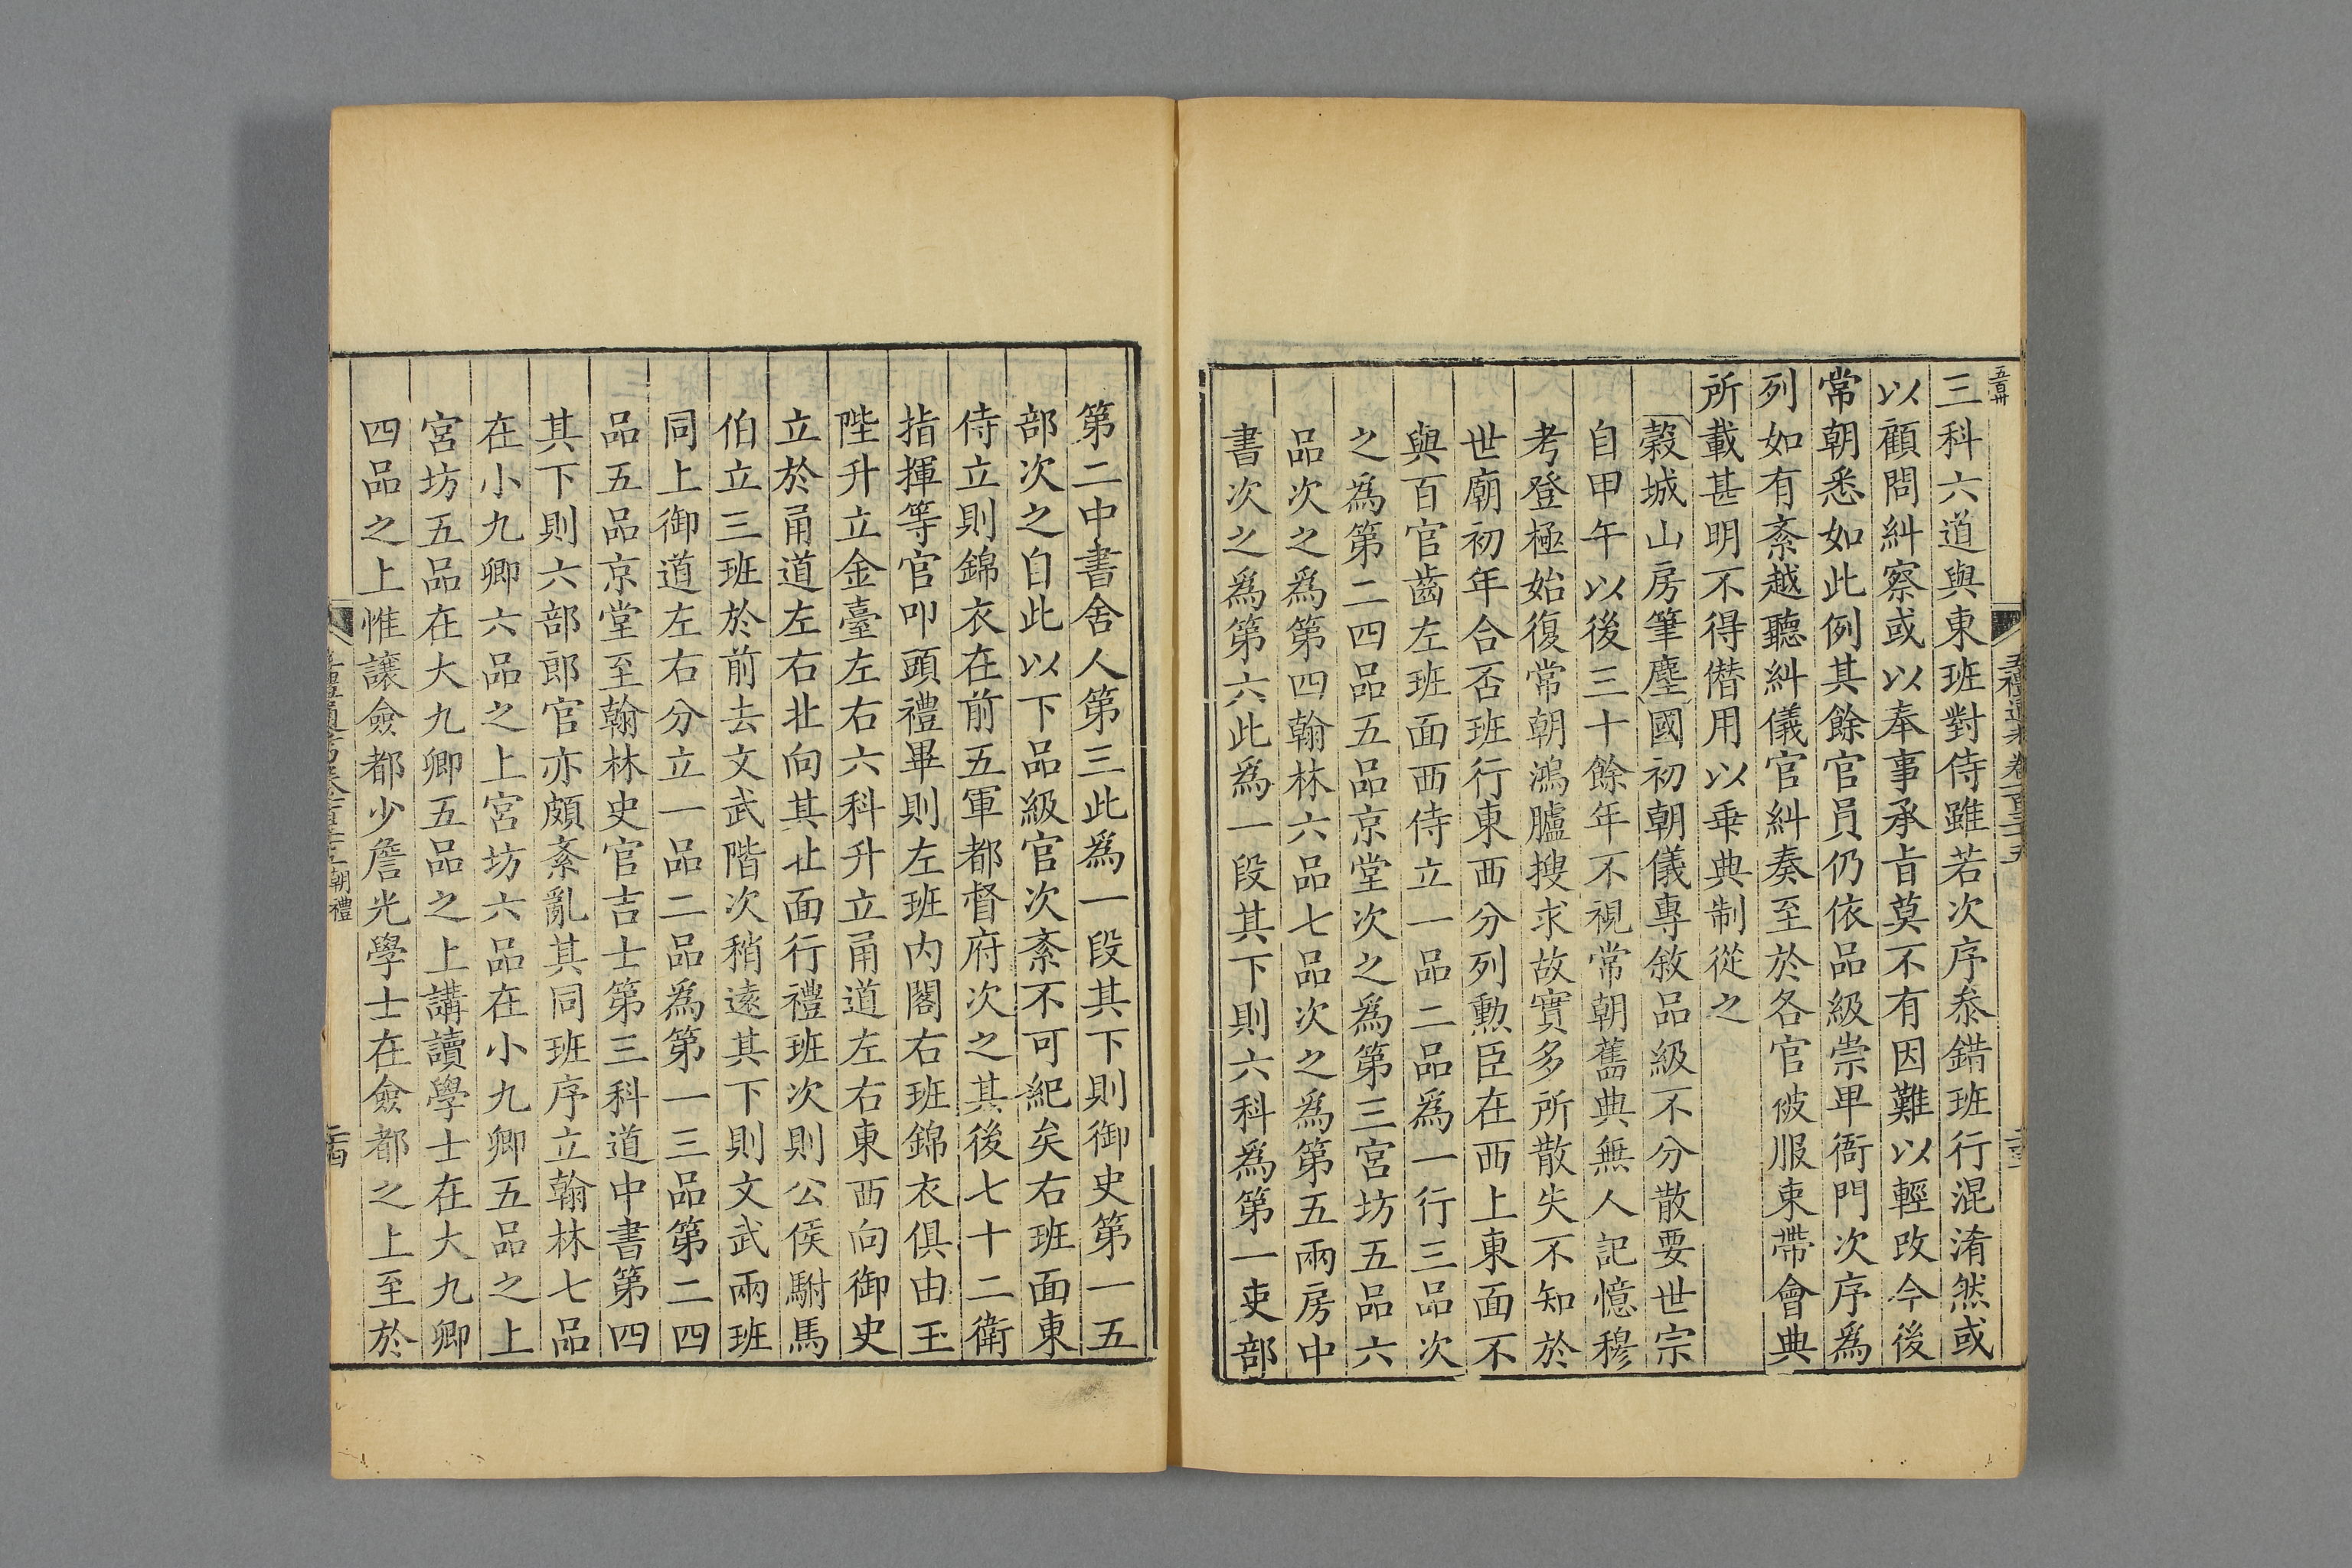 三科六道與東班對侍雖若次序叅錯班行混淆然或
以顧問糾察或以奉事承旨莫不有因難以輕改今後
常朝悉如此例其餘官員仍依品級崇卑衙門次序爲
列如有紊越聽糾儀官糾奏至於各官被服束帶會典
所載甚明不得僭用以乗典制從之
穀城山房筆麈國初朝儀專敘品級不分散要世宗
自甲午以後三十餘年不視常朝舊典無人記憶穆
考登極始復常朝鴻臚搜求故實多所散失不知於
世廟初年合否班行東西分列勲臣在西上東面不
與百官齒左班面西侍立一品二品爲一行三品次
之爲第二四品五品京堂次之爲第三宮坊五品六
品次之爲第四翰林六品七品次之爲第五兩房中
書次之爲第六此爲一段其下則六科爲第一吏部
第二中書舍人第三此爲一段其下則御史第一五
部次之自此以下品級官次紊不可紀矣右班面東
侍立則錦衣在前五軍都督府次之其後七十二衛
指揮等官叩頭禮畢則左班内閣右班錦衣俱由玉
陛升立金臺左右六科升立甬道左右東西向御史
立於甬道左右北向其北面行禮班次則公侯駙馬
伯立三班於前去文武階次稍遠其下則文武兩班
同上御道左右分立一品二品爲第一三品第二四
品五品京堂至翰林史官吉士第三科道中書第四
其下則六部郎官亦頗紊亂其同班序立翰林七品
在小九卿六品之上宮坊六品在小九卿五品之上
宮坊五品在大九卿五品之上講讀學士在大九卿
四品之上惟讓僉都少詹光學士在僉都之上至於
朝禮